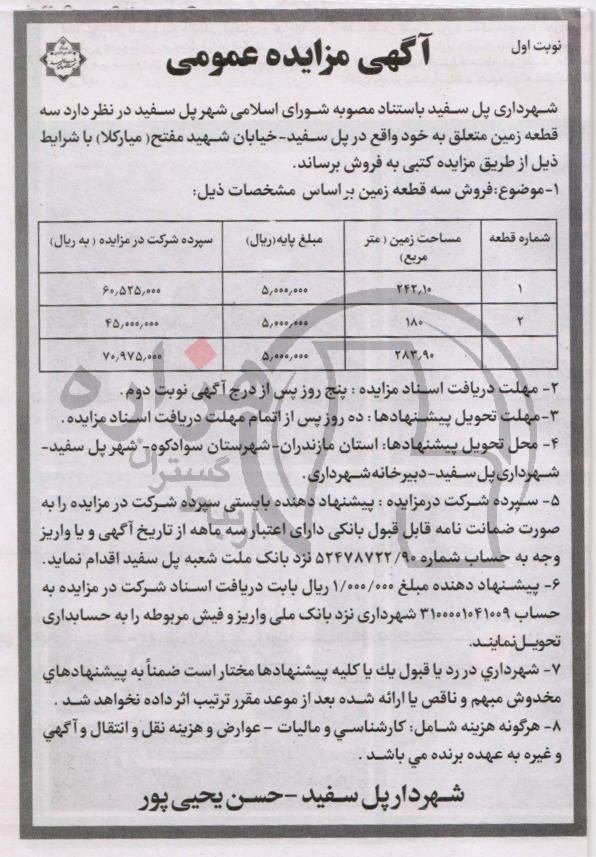 نوبت اول
آگهی مزایده عمومی
شهرداری پل سفید باستناد مصوبه شورای اسلامی شهر پل سفید در نظر دارد سه
قطعه زمین متعلق به خود واقع در پل سفید-خیابان شهید مفتح( میارکلا) با شرایط
ذیل از طریق مزایده کتبی به فروش برساند.
۱-موضوع:فروش سه قطعه زمین بر اساس مشخصات ذیل:
شماره قطعه | مساحت زمین ( متر مربع) | مبلغ پایه(ریال) | سپرده شرکت در مزایده ( به ریال)
۱ | ۲۴۲٫۱۰ | ۵٫۰۰۰٫۰۰۰ | ۶۰٫۵۲۵٫۰۰۰
۲ | ۱۸۰ | ۵٫۰۰۰٫۰۰۰ | ۴۵٫۰۰۰٫۰۰۰
۲۸۳٫۹۰ | ۵٫۰۰۰٫۰۰۰ | ۷۰٫۹۷۵٫۰۰۰
۲- مهلت دریافت اسناد مزایده : پنج روز پس از درج آگهی نوبت دوم .
۳-مهلت تحویل پیشنهادها: ده روز پس از اتمام مهلت دریافت اسناد مزایده.
۴- محل تحویل پیشنهادها: استان مازندران-شهرستان سوادکوه- شهر پل سفید-
شهرداری پل سفید-دبیرخانه شهرداری.
۵- سپرده شرکت درمزایده : پیشنهاد دهنده بایستی سپرده شرکت در مزایده را به
صورت ضمانت نامه قابل قبول بانکی دارای اعتبار سه ماهه از تاریخ آگهی و یا واریز
وجه به حساب شماره ۵۲۴۷۸۷۲۲/۹۰ نزد بانک ملت شعبه پل سفید اقدام نماید.
۶- پیشنهاد دهنده مبلغ ۱/۰۰۰/۰۰۰ ریال بابت دریافت اسناد شرکت در مزایده به
حساب ۳۱۰۰۰۰۱۰۴۱۰۰۹ شهرداری نزد بانک ملی واریز و فیش مربوطه را به حسابداری
تحویل نمایند.
۷- شهرداري در رد یا قبول یك یا کلیه پیشنهادها مختار است ضمناً به پیشنهادهاي
مخدوش مبهم و ناقص یا ارائه شده بعد از موعد مقرر ترتیب اثر داده نخواهد شد .
۸- هرگونه هزینه شامل: کارشناسي و مالیات – عوارض و هزینه نقل و انتقال و آگهي
و غیره به عهده برنده مي باشد .
شهردار پل سفید -حسن یحیی پور
هزاره
گستران